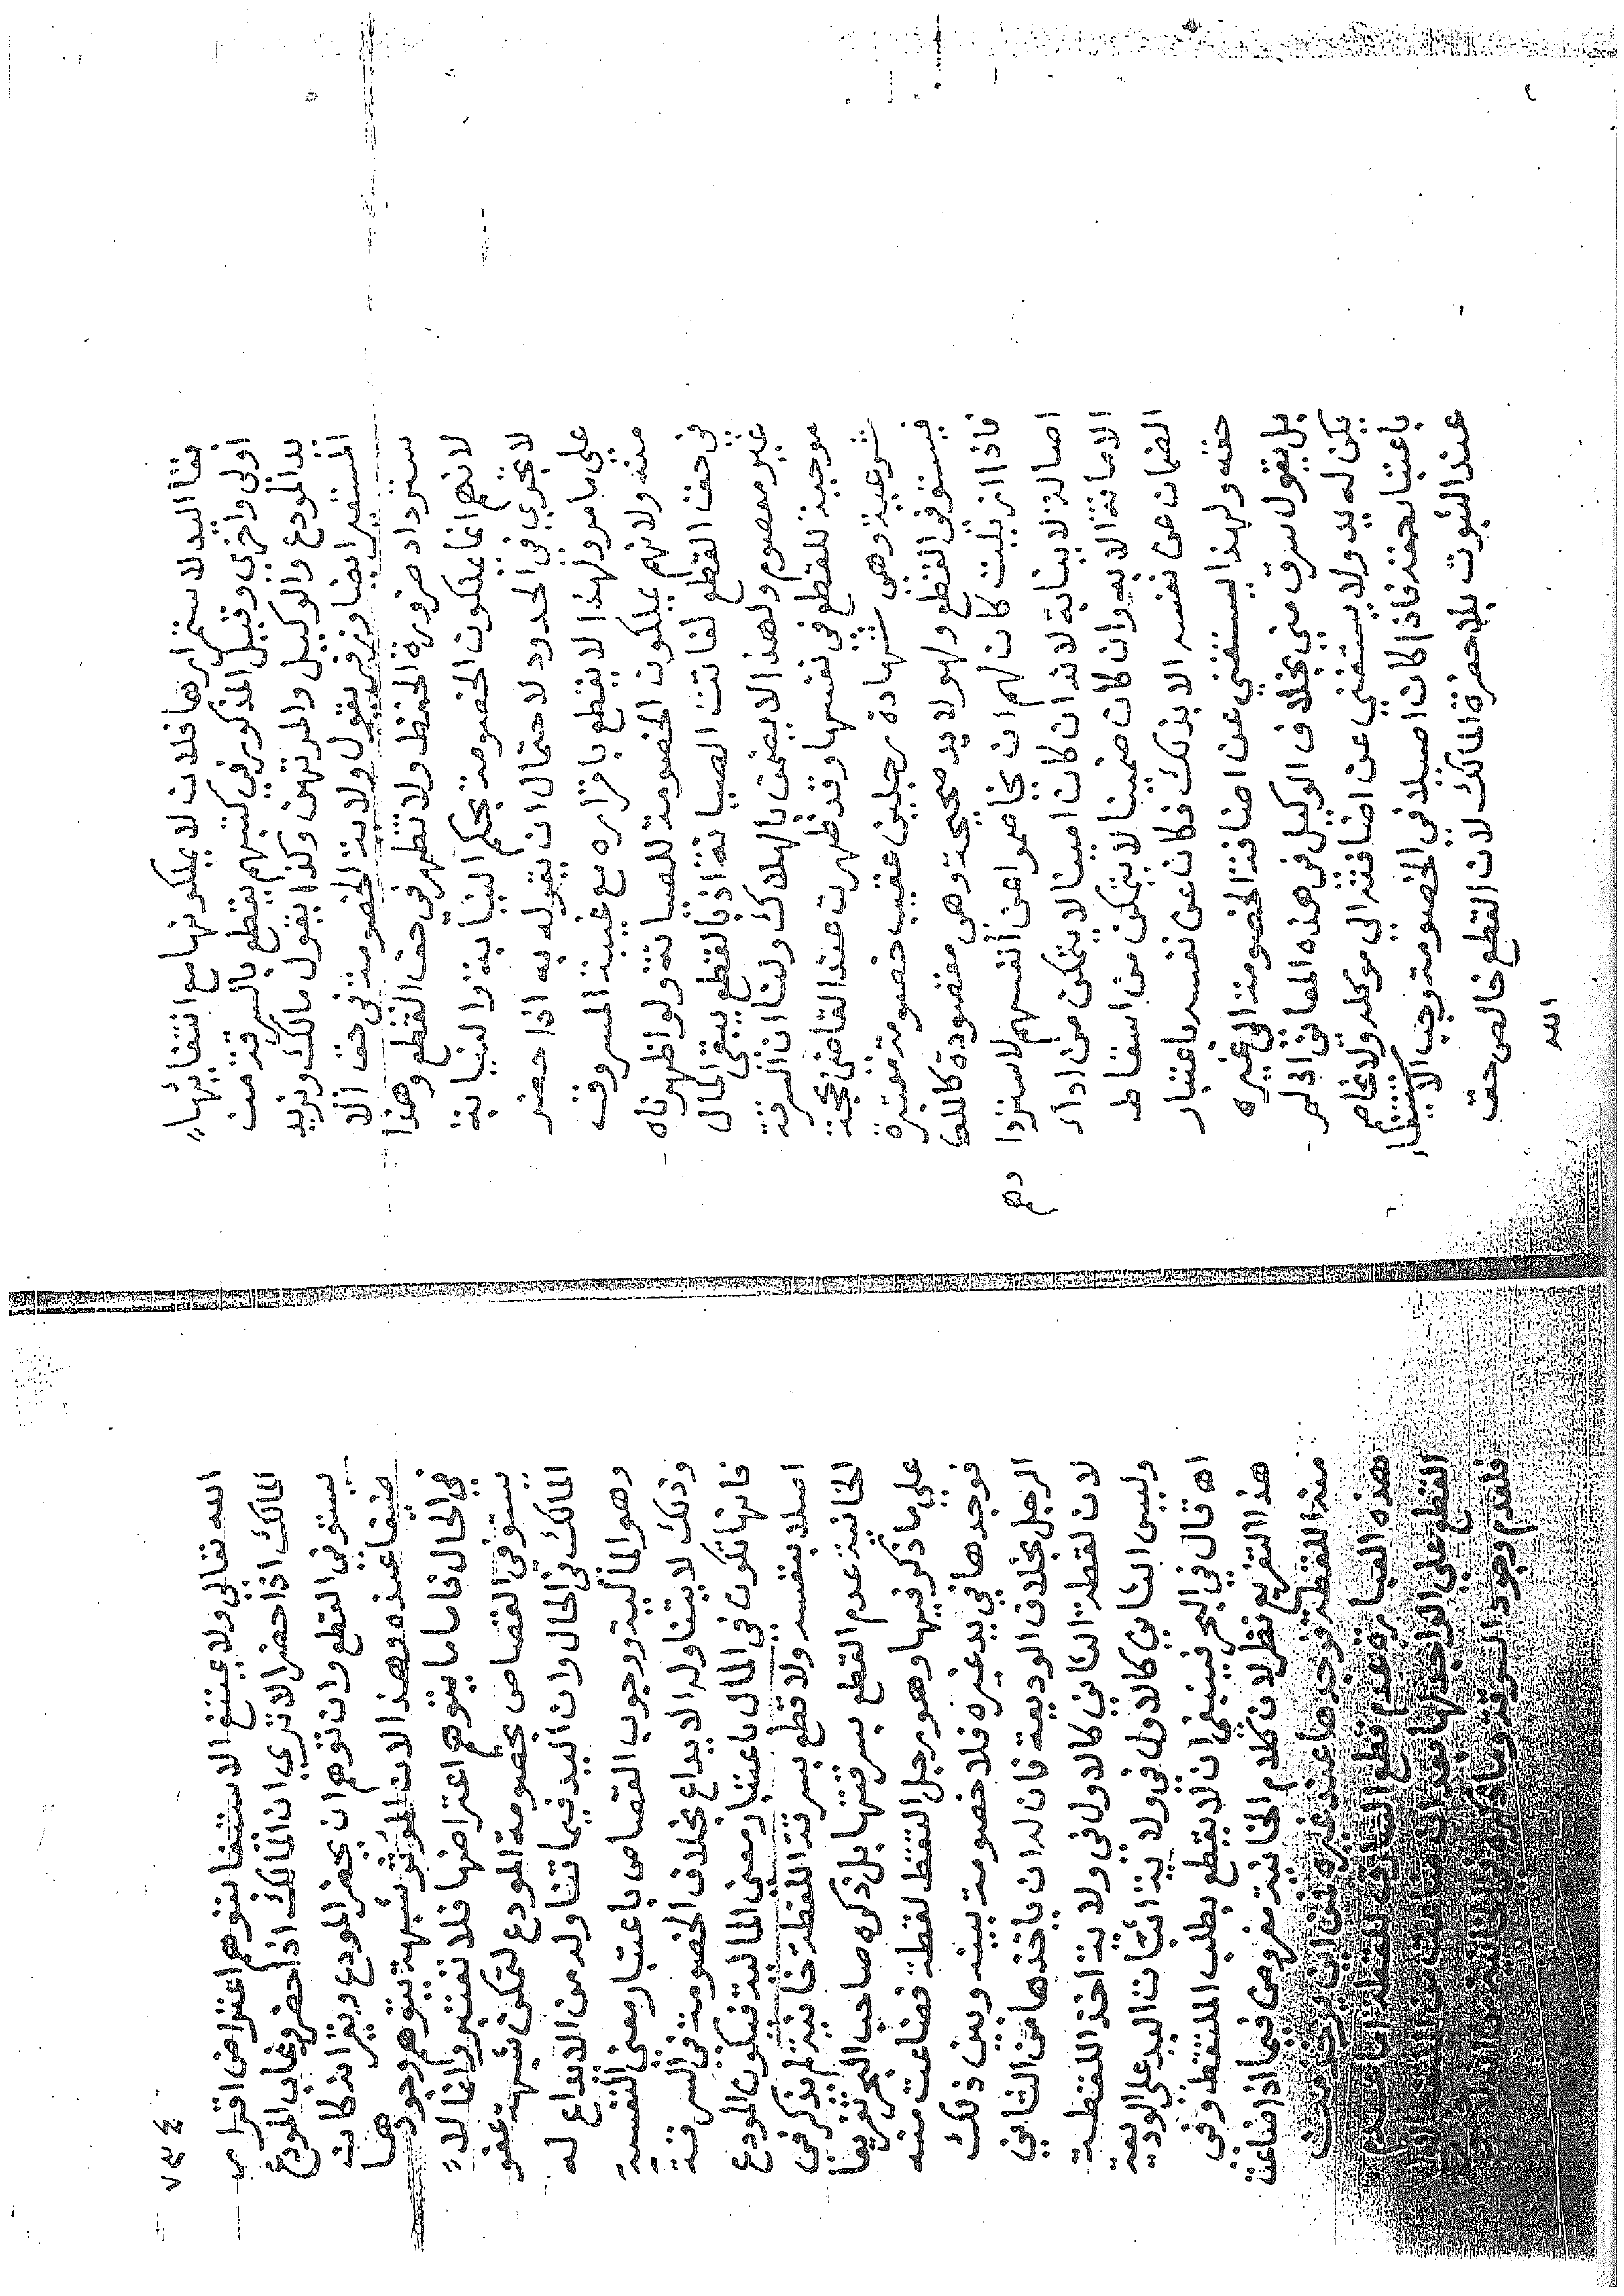 بقاء اليد لاستمرارها فلان لا يملكونها مع انتفائها
اولى واخرى وقيل المذكور في كتبهم يقطع بالسرقة من
يد المودع والوكيل والمرتهن وكذا يقول مالك ونريد
المستقر ايضا وزفر يقول ولاية الخصومة في حق الا
ستوداد ضرورة الحفظ ولا تظهر في حق القطع وهذا
لانهم انما يملكون الخصومة بحكم النيابة والنيابة
لا تجري في الحدود لاحتمال ان يقوله به اذا حضر
على ما مر ولهذا لا يقطع باقراره مع غيبة المسروق
منه ولانهم يملكون الخصومة للصيانة ولو اظهرناه
في حق القطع لفاتت الصيانة اذ بالقطع يبقى المال
غير معصوم ولهذا لا يضمن بالهلاك ولنا ان السرقة
موجبة للقطع في نفسها وقد ظهرت عند القاضي بحجة
شرعية وهي شهادة رجلين عقيب خصومة معتبرة
فيستوفى القطع ولهولا يد صحيحة وهي مقصودة كالملك
فاذا ازيلت كان لهم ان يخاصموا عن انفسهم لاستردا دها
اصالة لا نيابة لانه ان كان امينا لا يتمكن من اداء
الامانة الا به وان كان ضمينا لا يتمكن من اسقاط
الضمان عن نفسه الا بذلك فكان عن نفسه باعتبار
حقه ولهذا يستغني عن اضافة الخصومة الى غيره
بل يقول سرق مني بخلاف الوكيل في هذه المعاني اذ لم
يكن له يد ولا يستغني عن اضافته الى موكله ولا يخاصم
باعتبار حقه فاذا كان اصلا في الخصومة وجب الاستيفاء
عند الثبوت بلا حضرة المالك لان القطع خالص حق
الله
٧٣٤
الله تعالى ولا يمتنع الاستيفا بتوهم اعتراض اقرار
المالك اذا حضر الا ترى ان المالك اذا حضر وغاب المودع
يستوفي القطع وان توهم ان يحضر المودع ويقر انه كان
ضيفا عنده وهذا لان المؤثر شبهة يتوهم وجودها
في الحال فاما ما يتوهم اعتراضها فلا تعتبر وانما لا
يستوفي القصاص بخصومة المودع لتمكن شبهة عفو
المالك في الحال وان اليد فيما تناوله من الايداع له
وهو المالية ووجوب القصاص باعتبار معنى النفسية
وذلك لا يتناوله الايداع بخلاف الخصومة في السرقة
فانها تكون في المال باعتبار معنى المالية فيكون المودع
اصلا بنفسه ولا قطع بسرقة اللقطة خانية لم يذكر في
الخانية عدم القطع بسرقتها بل ذكره صاحب البحر تفريعا
على ما ذكر فيها وهو رجل التقط لقطة فضاعت منه
فوجدها في يد غيره فلا خصومة بينه وبين ذلك
الرجل بخلاف الوديعة فان له ان ياخذها من الثاني
لان لقطة الثاني كالاول في ولاية اخذ اللقطة
وليس الثاني كالاول في ولاية اثبات اليد على الوديعة
اه قال في البحر فينبغي ان لا يقطع بطلب الملتقط وفي
هذا التفريع نظر لان كلام الخانية مفروض فيما اذا ضاعت
منه اللقطة فوجدها عند غيره فمن اين يوخذ من
هذه العبارة عدم قطع السارق للقطة اما عدم
القطع على الواجد لها بعد ان ضاعت من الملتقط الاول
فلعدم وجود السرقة وما ذكره في الخانية من انه لا خصومة